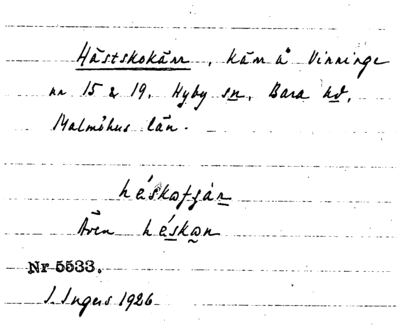 Hästskokärr, kärr å Vinninge
nr 15 & 19, Hyby sn, Bara hd,
Malmöhus län.
Även
Nr 5533.
I. Ingers 1926